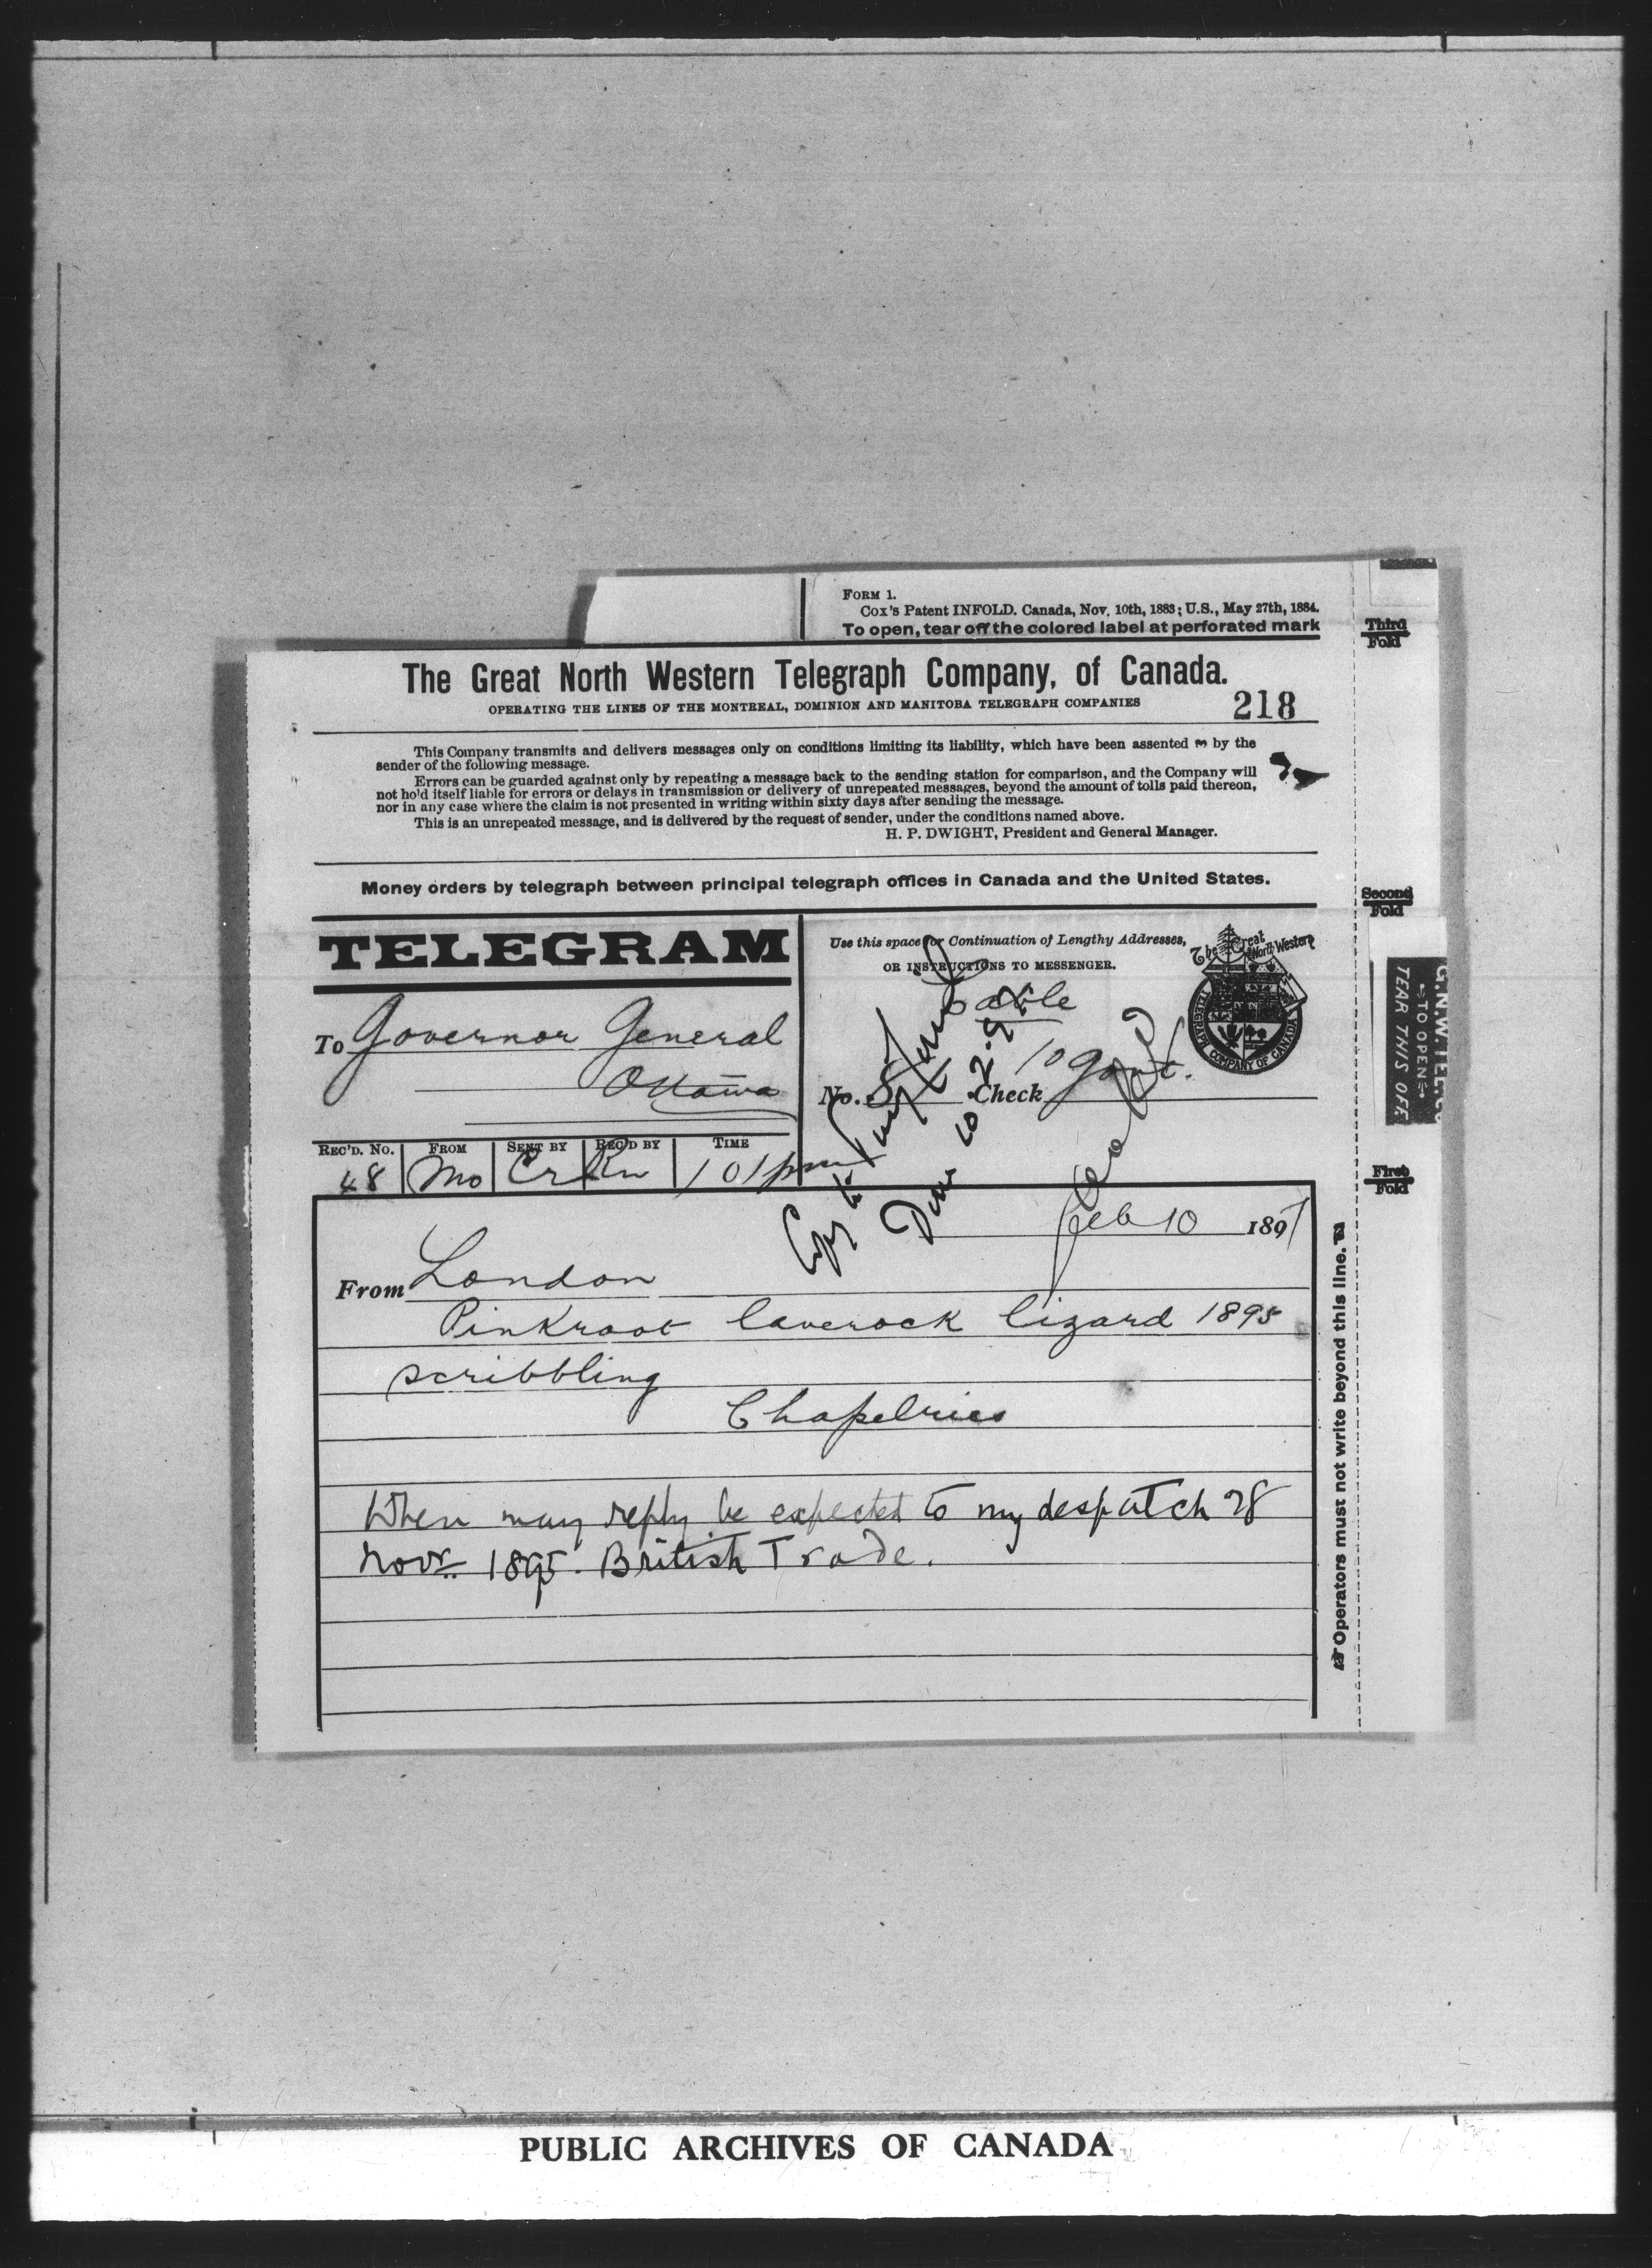 FORM 1.
Cox's Patent INFOLD. Canada, Nov. 10th, 1883; U.S., May 27th, 1884.
To open, tear off the colored label at perforated mark
Third
Fold
The Great North Western Telegraph Company, of Canada.
OPERATING THE LINES OF THE MONTREAL, DOMINION AND MANITOBA TELEGRAPH COMPANIES
218
This Company transmits and delivers messages only on conditions limiting its liability, which have been assented to by the
sender of the following message.
Errors can be guarded against only by repeating a message back to the sending station for comparison, and the Company will
not ho'd itself liable for errors or delays in transmission or delivery of unrepeated messages, beyond the amount of tolls paid thereon,
nor in any case where the claim is not presented in writing within sixty days after sending the message.
This is an unrepeated message, and is delivered by the request of sender, under the conditions named above.
H. P. DWIGHT, President and General Manager.
Money orders by telegraph between principal telegraph offices in Canada and the United States.
Second
Fold
TELEGRAM
Use this space for Continuation of Lengthy Addresses,
OR INSTRUCTIONS TO MESSENGER.
The Great North Western
TELEGRAPH COMPANY OF CANADA
G.N.W. TEL. Co.
TO OPEN
TEAR THIS OFF
To Governor General
Ottawa
Cable
No. 8 Check 10 Govt.
Copy to
10.2.97
REC'D. NO. FROM SENT BY REC'D BY TIME
48 Mo Cr Kn 101pm
First
Fold
Feb 10 1897
From London
Pinkroot laverock lizard 1895
scribbling
Chapelries
When may reply be expected to my despatch 28
Novr. 1895. British Trade.
Operators must not write beyond this line.
PUBLIC ARCHIVES OF CANADA